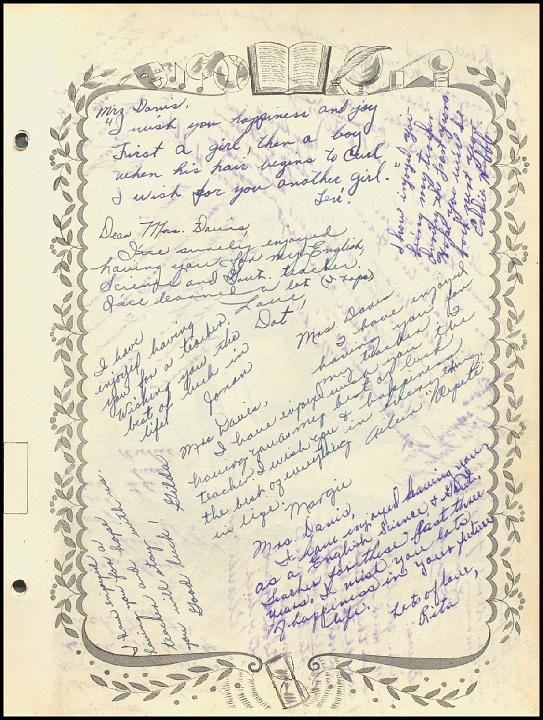 Mrs Davis,
"I wish you happiness and joy
First a girl, then a boy
when his hair begins to curl
I wish for you another girl.
Teré!
Dear Mrs. Davis,
I've surely enjoyed
having you for my English
Science and teacher.
I've learned a lot (I hope)
Love,
Dot,
I have enjoyed you
having my teacher
the past years.
hope you will be
Mrs Davis
I have enjoyed
having you for
my teacher. I
wish you the
best of luck
& happiness
in future time.
Aileen
I have
enjoyed having
you for a teacher.
Wishing you the
best of luck in
life!
Mrs Davis,
I have enjoyed
having you as my
teacher. I wish you
the best of everything
in life.
Margie
I have enjoyed
having you for a
teacher and hope
you will stay with us.
Good luck!
Mrs. Davis,
I have enjoyed having you
as a English, Science, &
teacher for these past three
years. I wish you lots
of happiness in your future
life.
Lots of love,
Rita